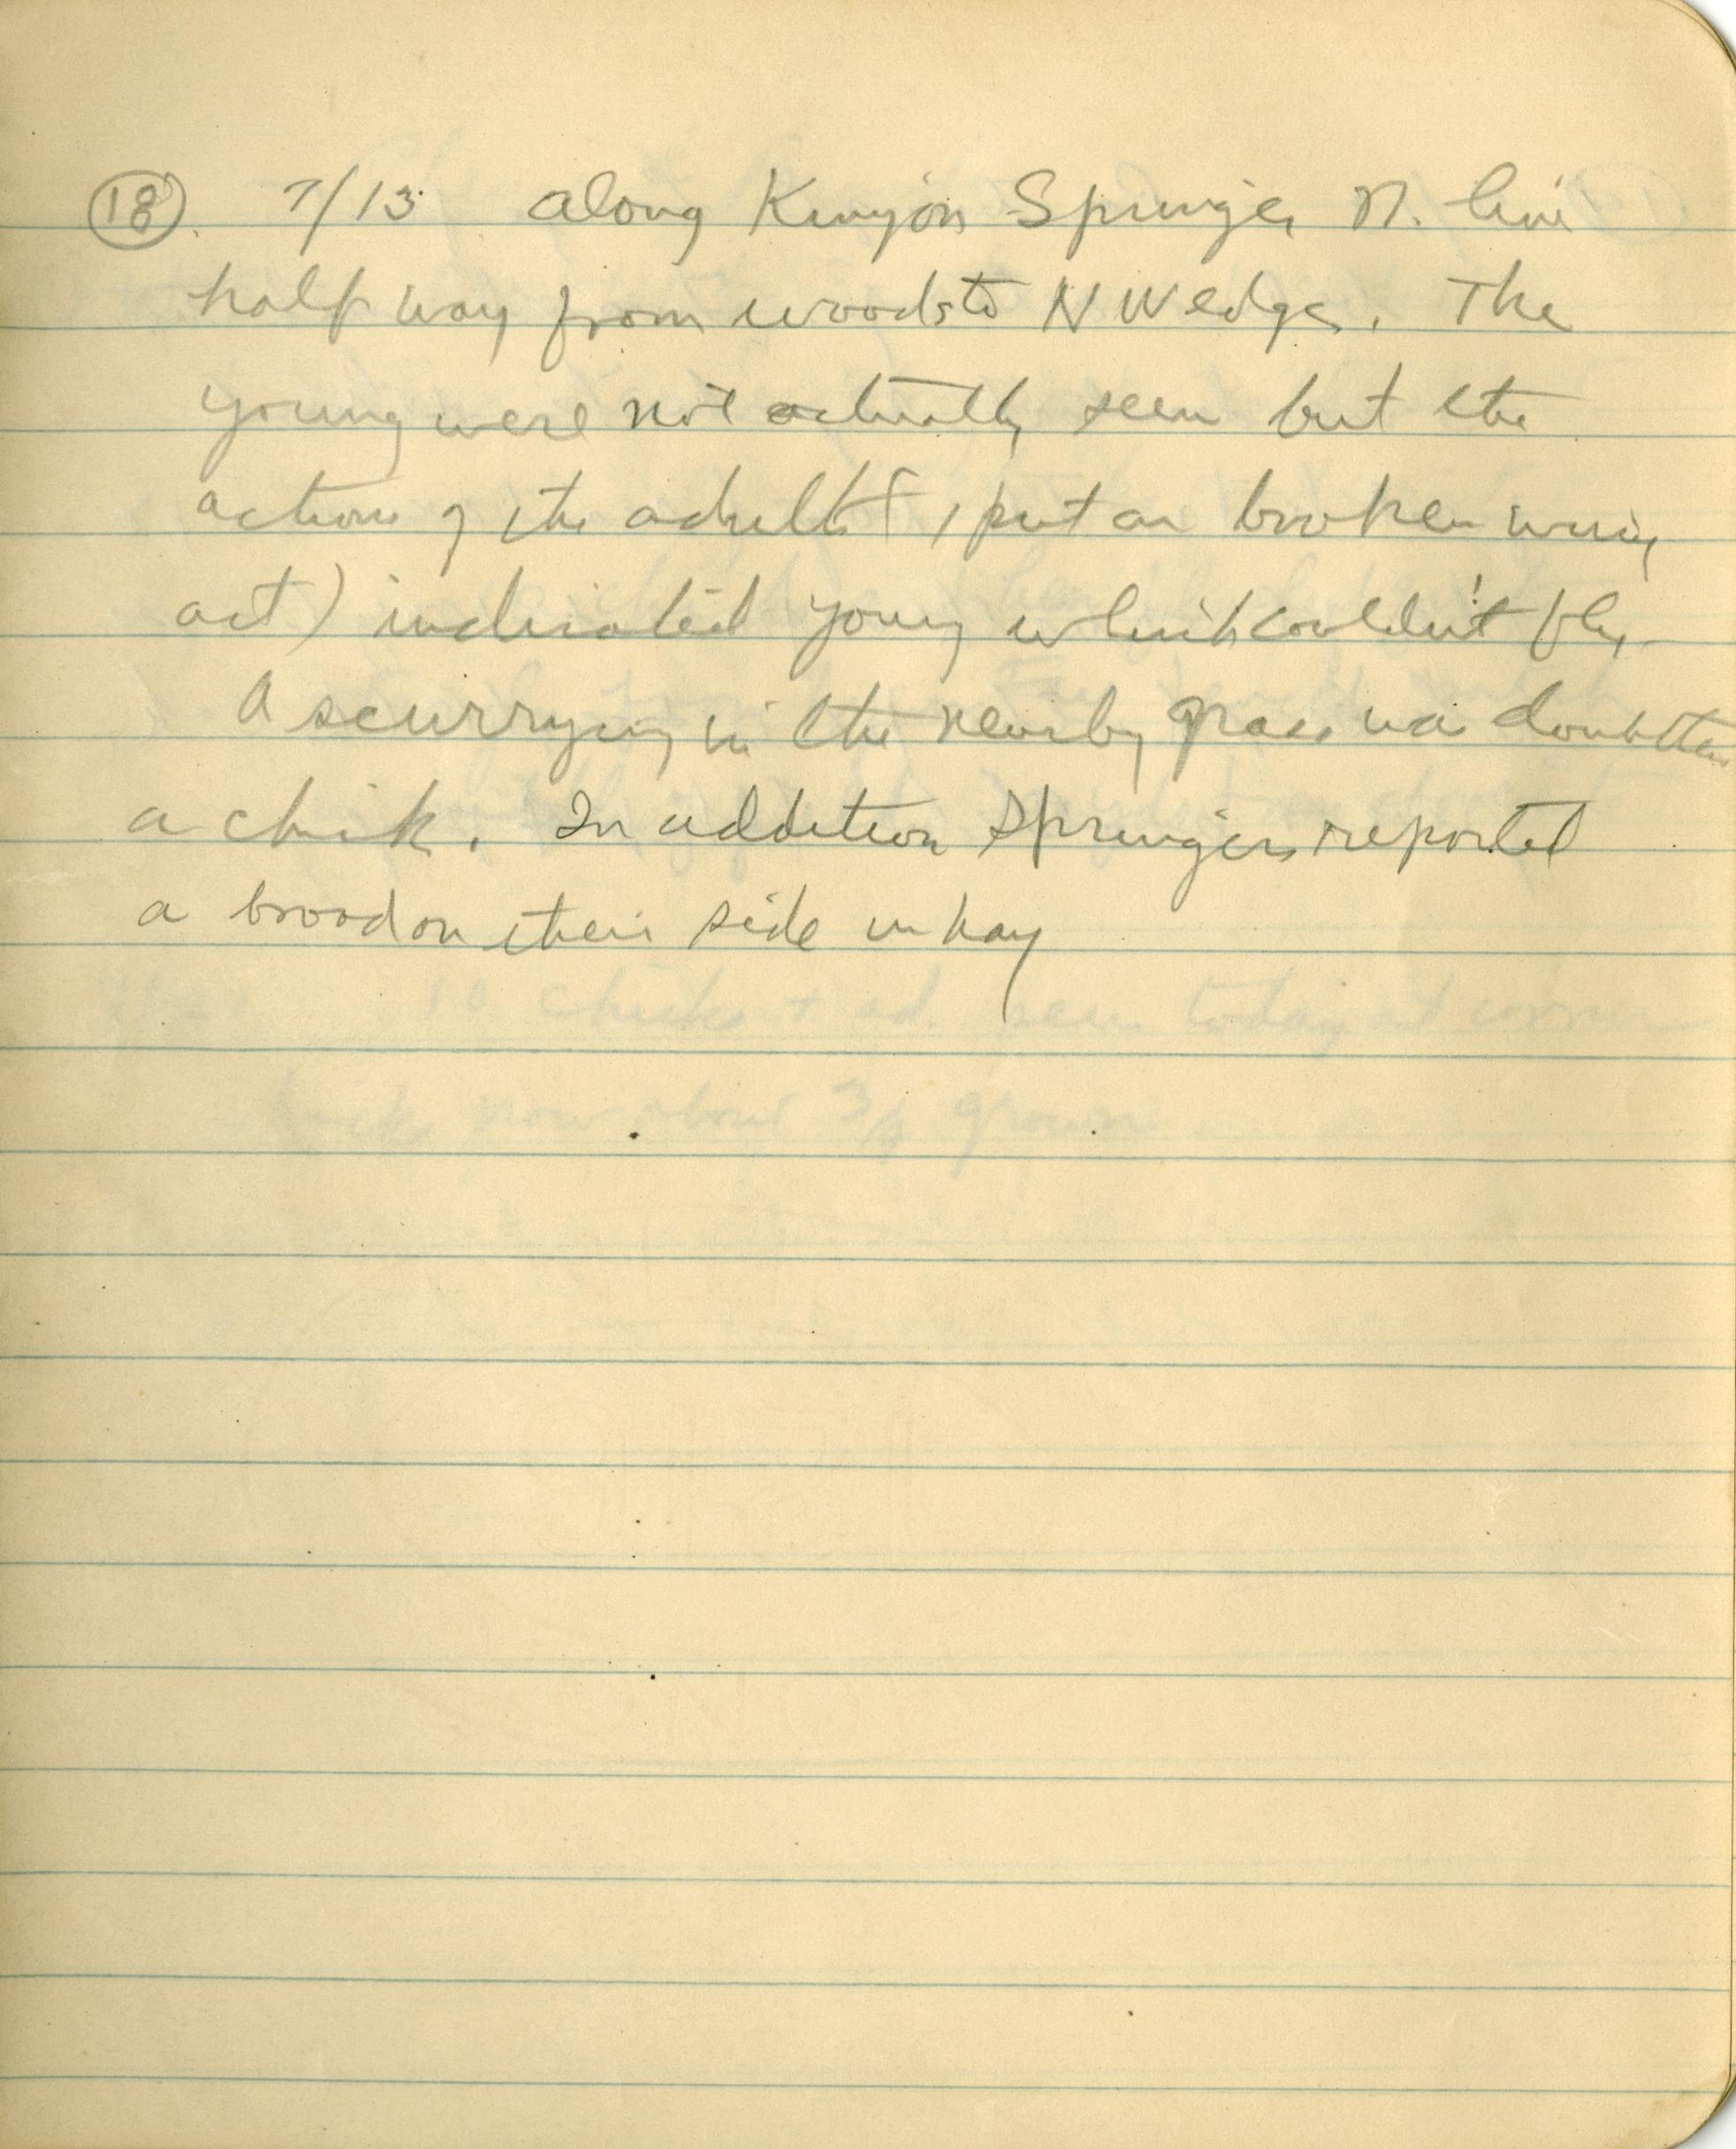 (18). 7/13 along Kenyon Springer N. line
half way from woods to NW edge. The
young were not actually seen but the
actions of the adult (put on broken wing
act) indicated young which couldn't fly.
A scurrying in the nearby grass was doubtless
a chick. In addition Springers reported
a brood on their side in hay
10 chicks + ad. seen today at corner
now about 3/4 grown